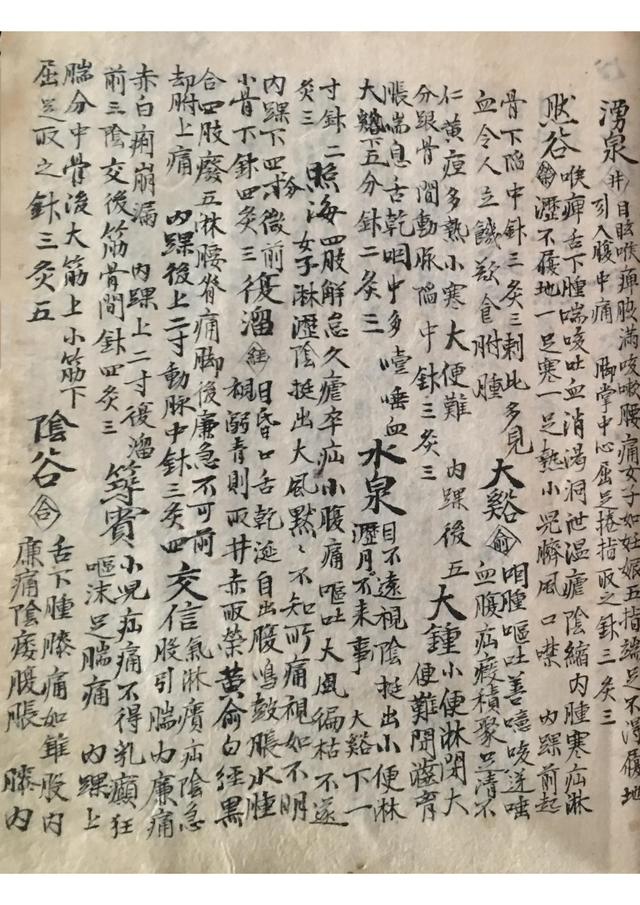 湧泉 井 目眩喉痺胶滿咳嗽腰痛女子如妊娠五指端足不得履地
引入腹中痛 脚掌中心屈足捲指取之針三灸三
然谷 滎 喉痺舌下腫喘咳吐血消渴洞泄温瘧陰縮内腫寒疝淋
瀝不履地一足寒一足熱小児臍風口噤 内踝前起
骨下陷中針三灸三刺此多見
血令人立饑欲食胕腫
大谿 俞 咽腫嘔吐善噫咳逆唾
血腹疝瘕積聚口清不
仁黄疸多熱小寒大便難 内踝後五
分跟骨間動脈陷中針三灸三
大鍾 小便淋閉大
便難閉澁胷
脹喘息舌乾咽中多噎唾血
大谿下五分針二灸三
水泉 目不遠視陰挺出小便淋
瀝月不来事 大谿下一
寸針二
灸三
照海 四肢解怠久瘧卒疝小腹痛嘔吐大風偏枯不遂
女子淋瀝陰挺出大風黙々不知所痛視如不明
内踝下四分微前
小骨下針四灸三
復溜 経 目昏口舌乾涎自出腹鳴鼓脹水腫
視溺青則取井赤取滎黄俞白經黒
合四肢廢五淋腰脊痛脚後廉急不可前
却胕上痛 内踝後上二寸動脉中針三灸四
交信 氣淋㿗疝陰急
股引腨内廉痛
赤白痢崩漏 内踝上二寸復溜
前三陰交後筋骨間針四灸三
築賓 小児疝痛不得乳癲狂
嘔沫足腨痛 内踝上
腨分中骨後大筋上小筋下
屈足取之針三灸五
陰谷 合 舌下腫膝痛如錐股内
廉痛陰痿腹脹 膝内